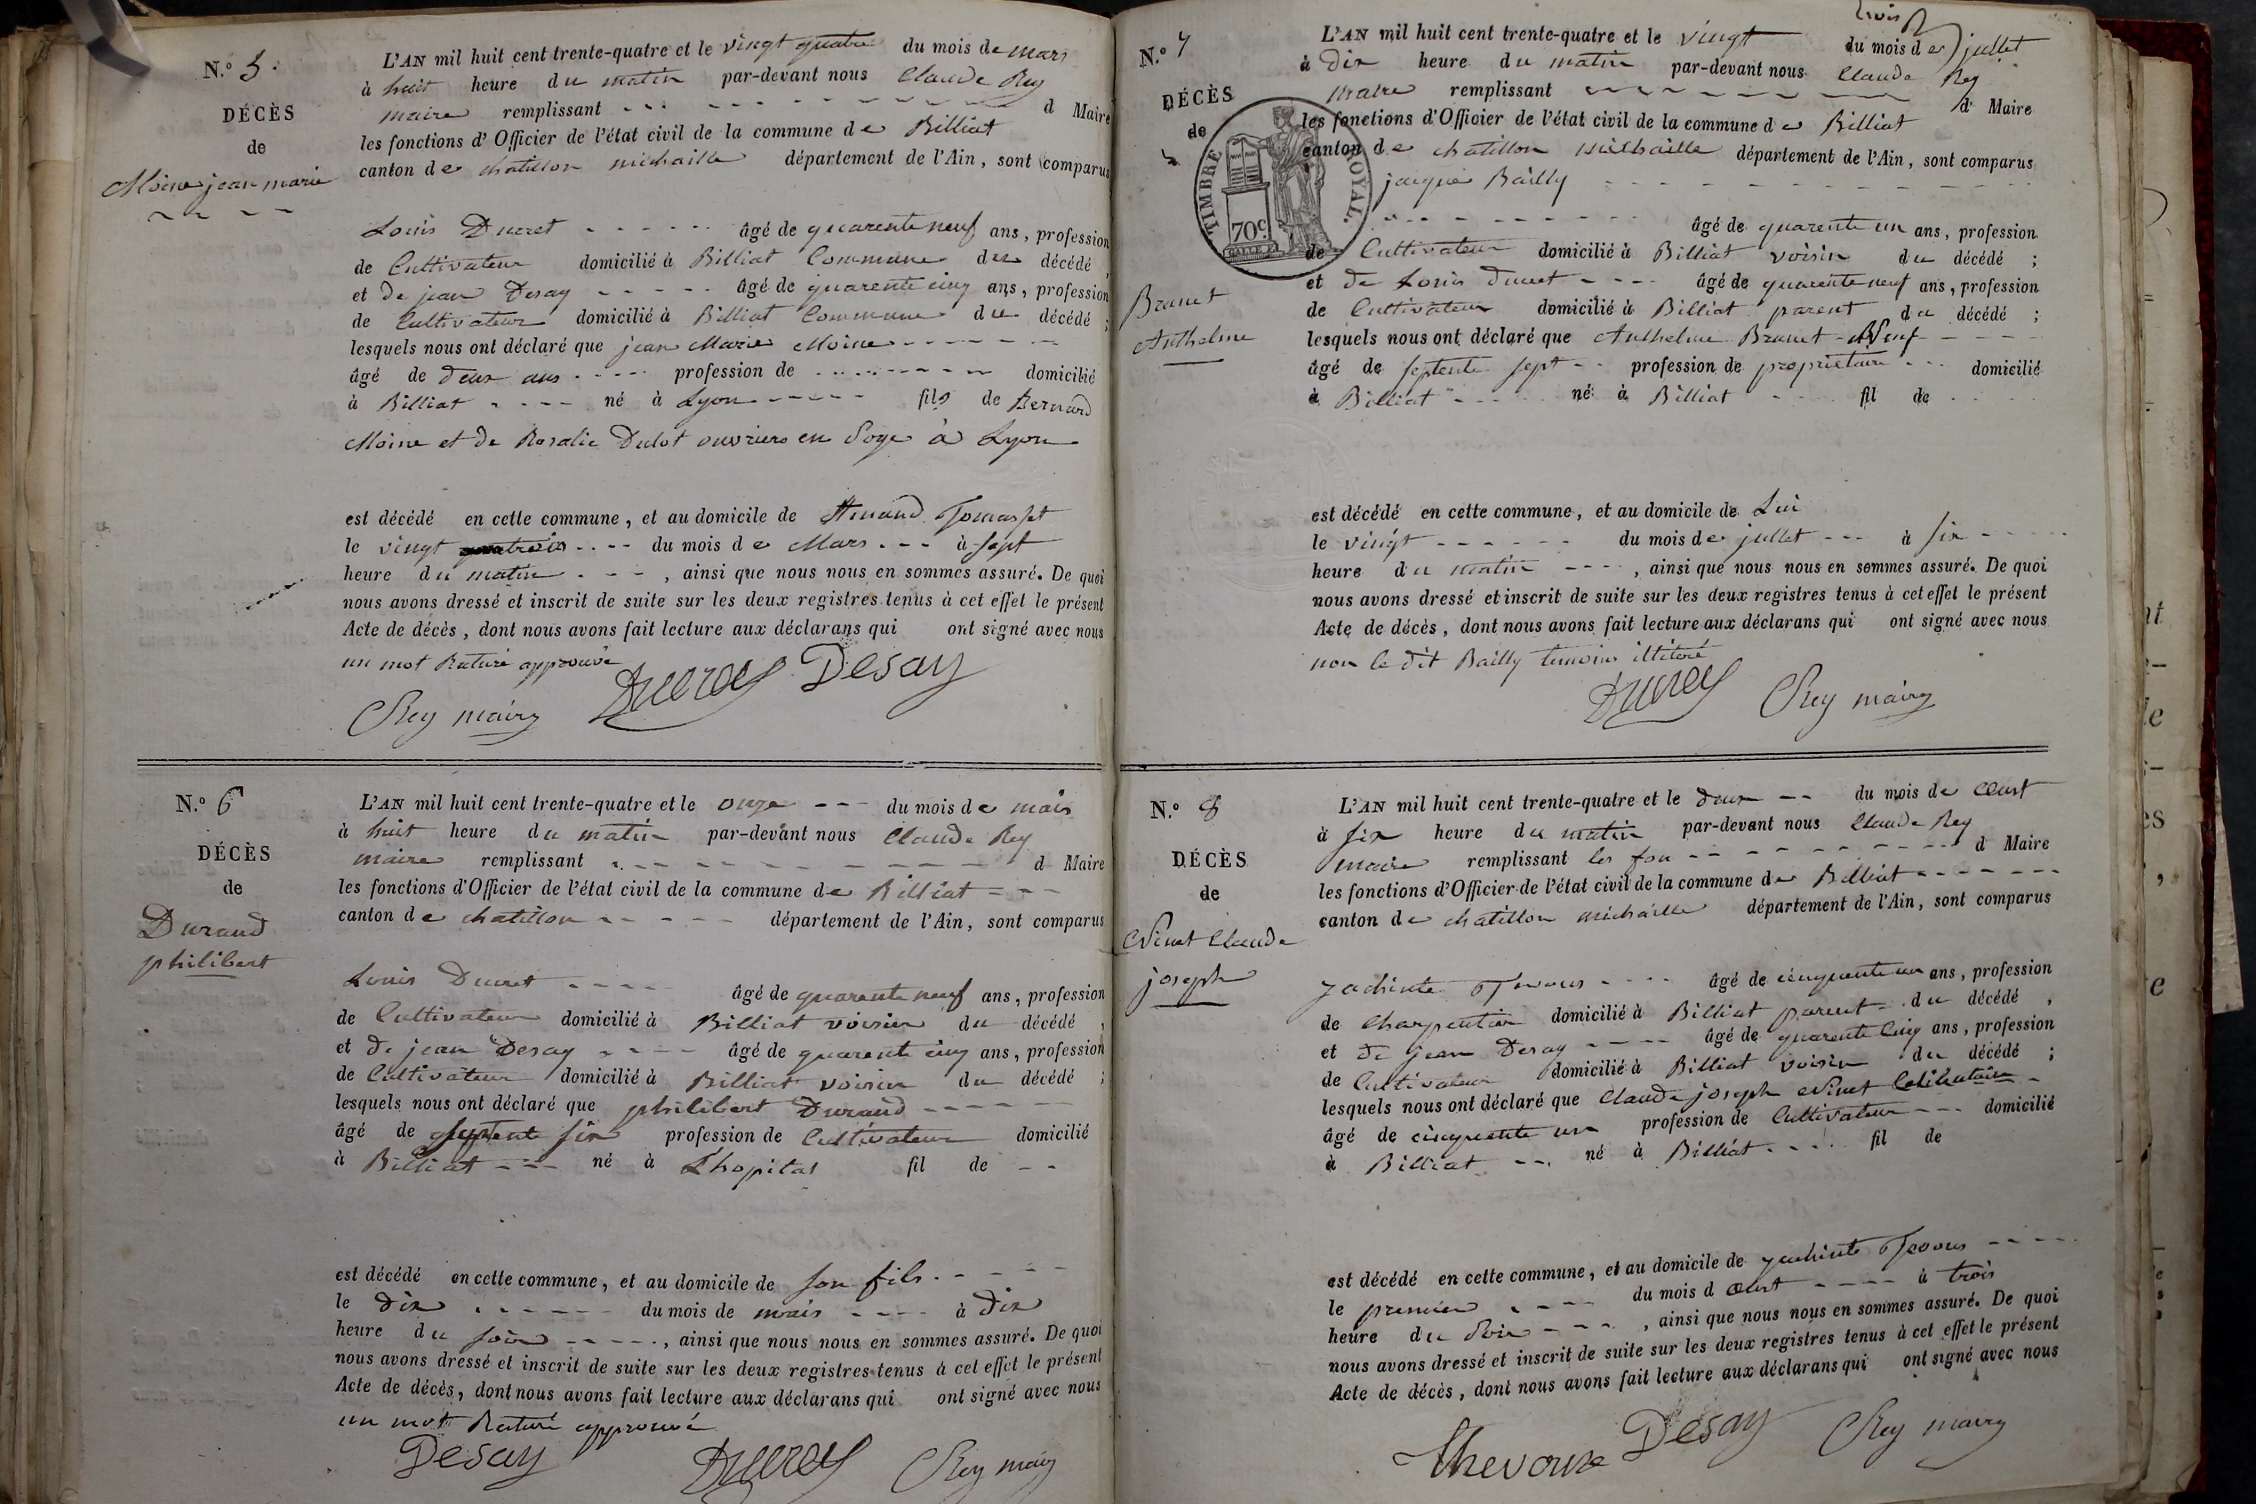 N.º 5.
DÉCÈS
de
Moine jean marie
L'AN mil huit cent trente-quatre et le vingt quatre du mois de mars
à huit heure du matin par-devant nous Claude Rey
maire remplissant d Maire
les fonctions d'Officier de l'état civil de la commune de Billiat
canton de chatillon michaille département de l'Ain, sont comparus
Louis Ducret âgé de quarente neuf ans, profession
de Cultivateur domicilié à Billiat Commune du décédé,
et de jean Desay âgé de quarente cinq ans, profession
de Cultivateur domicilié à Billiat Commune du décédé ;
lesquels nous ont déclaré que jean Marie Moine
âgé de deux ans profession de domicilié
à Billiat né à Lyon fils de Bernard
Moine et de Rosalie Dulot ouvriers en Soye à Lyon
est décédé en cette commune, et au domicile de
le vingt du mois de Mars à sept
heure du matin , ainsi que nous nous en sommes assuré. De quoi
nous avons dressé et inscrit de suite sur les deux registres tenus à cet effet le présent
Acte de décès, dont nous avons fait lecture aux déclarans qui ont signé avec nous
un mot Raturé approuvé
Rey maire Ducret Desay
N.º 6
DÉCÈS
de
Durand
philibert
L'AN mil huit cent trente-quatre et le onze du mois de mais
à huit heure du matin par-devant nous Claude Rey
maire remplissant d Maire
les fonctions d'Officier de l'état civil de la commune de Billiat
canton de chatillon département de l'Ain, sont comparus
Louis Ducret âgé de quarente neuf ans, profession
de Cultivateur domicilié à Billiat voisin du décédé,
et de jean Desay âgé de quarente cinq ans, profession
de Cultivateur domicilié à Billiat voisin du décédé ;
lesquels nous ont déclaré que philibert Durand
âgé de septente six profession de Cultivateur domicilié
à Billiat né à L'hopital fil de
est décédé en cette commune, et au domicile de son fils
le dix du mois de mais à dix
heure du soir , ainsi que nous nous en sommes assuré. De quoi
nous avons dressé et inscrit de suite sur les deux registres tenus à cet effet le présent
Acte de décès, dont nous avons fait lecture aux déclarans qui ont signé avec nous
un mot Raturé approuvé
Desay Ducret Rey maire
N.º 7
DÉCÈS
de
Brunet
Anthelme
TIMBRE ROYAL.
70c.
trois
L'AN mil huit cent trente-quatre et le vingt du mois de jullet
à dix heure du matin par-devant nous Claude Rey
maire remplissant d Maire
les fonctions d'Officier de l'état civil de la commune de Billiat
canton de chatillon michaille département de l'Ain, sont comparus
jacque Bailly
âgé de quarente un ans, profession
de Cultivateur domicilié à Billiat voisin du décédé ;
et de Louis ducret âgé de quarente neuf ans, profession
de Cultivateur domicilié à Billiat parent du décédé ;
lesquels nous ont déclaré que Anthelme Brunet Veuf
âgé de septente sept profession de proprietaire domicilié
à Billiat né à Billiat fil de
est décédé en cette commune, et au domicile de Lui
le vingt du mois de jullet à six
heure du matin , ainsi que nous nous en sommes assuré. De quoi
nous avons dressé et inscrit de suite sur les deux registres tenus à cet effet le présent
Acte de décès, dont nous avons fait lecture aux déclarans qui ont signé avec nous
non le dit Bailly temoins illitéré
Ducret Rey maire
N.º 8
DÉCÈS
de
Vinet Claude
joseph
L'AN mil huit cent trente-quatre et le deux du mois de Oust
à six heure du matin par-devant nous Claude Rey
maire remplissant les fon d Maire
les fonctions d'Officier de l'état civil de la commune de Billiat
canton de chatillon michaille département de l'Ain, sont comparus
âgé de cinquente un ans, profession
de Charpentier domicilié à Billiat parent du décédé,
et de jean Desay âgé de quarente Cinq ans, profession
de Cultivateur domicilié à Billiat voisin du décédé ;
lesquels nous ont déclaré que Claude joseph Vinet Celibataire
âgé de cinquente un profession de Cultivateur domicilié
à Billiat né à Billiat fil de
est décédé en cette commune, et au domicile de
le premier du mois d Oust à trois
heure du Soir , ainsi que nous nous en sommes assuré. De quoi
nous avons dressé et inscrit de suite sur les deux registres tenus à cet effet le présent
Acte de décès, dont nous avons fait lecture aux déclarans qui ont signé avec nous
Desay Rey maire